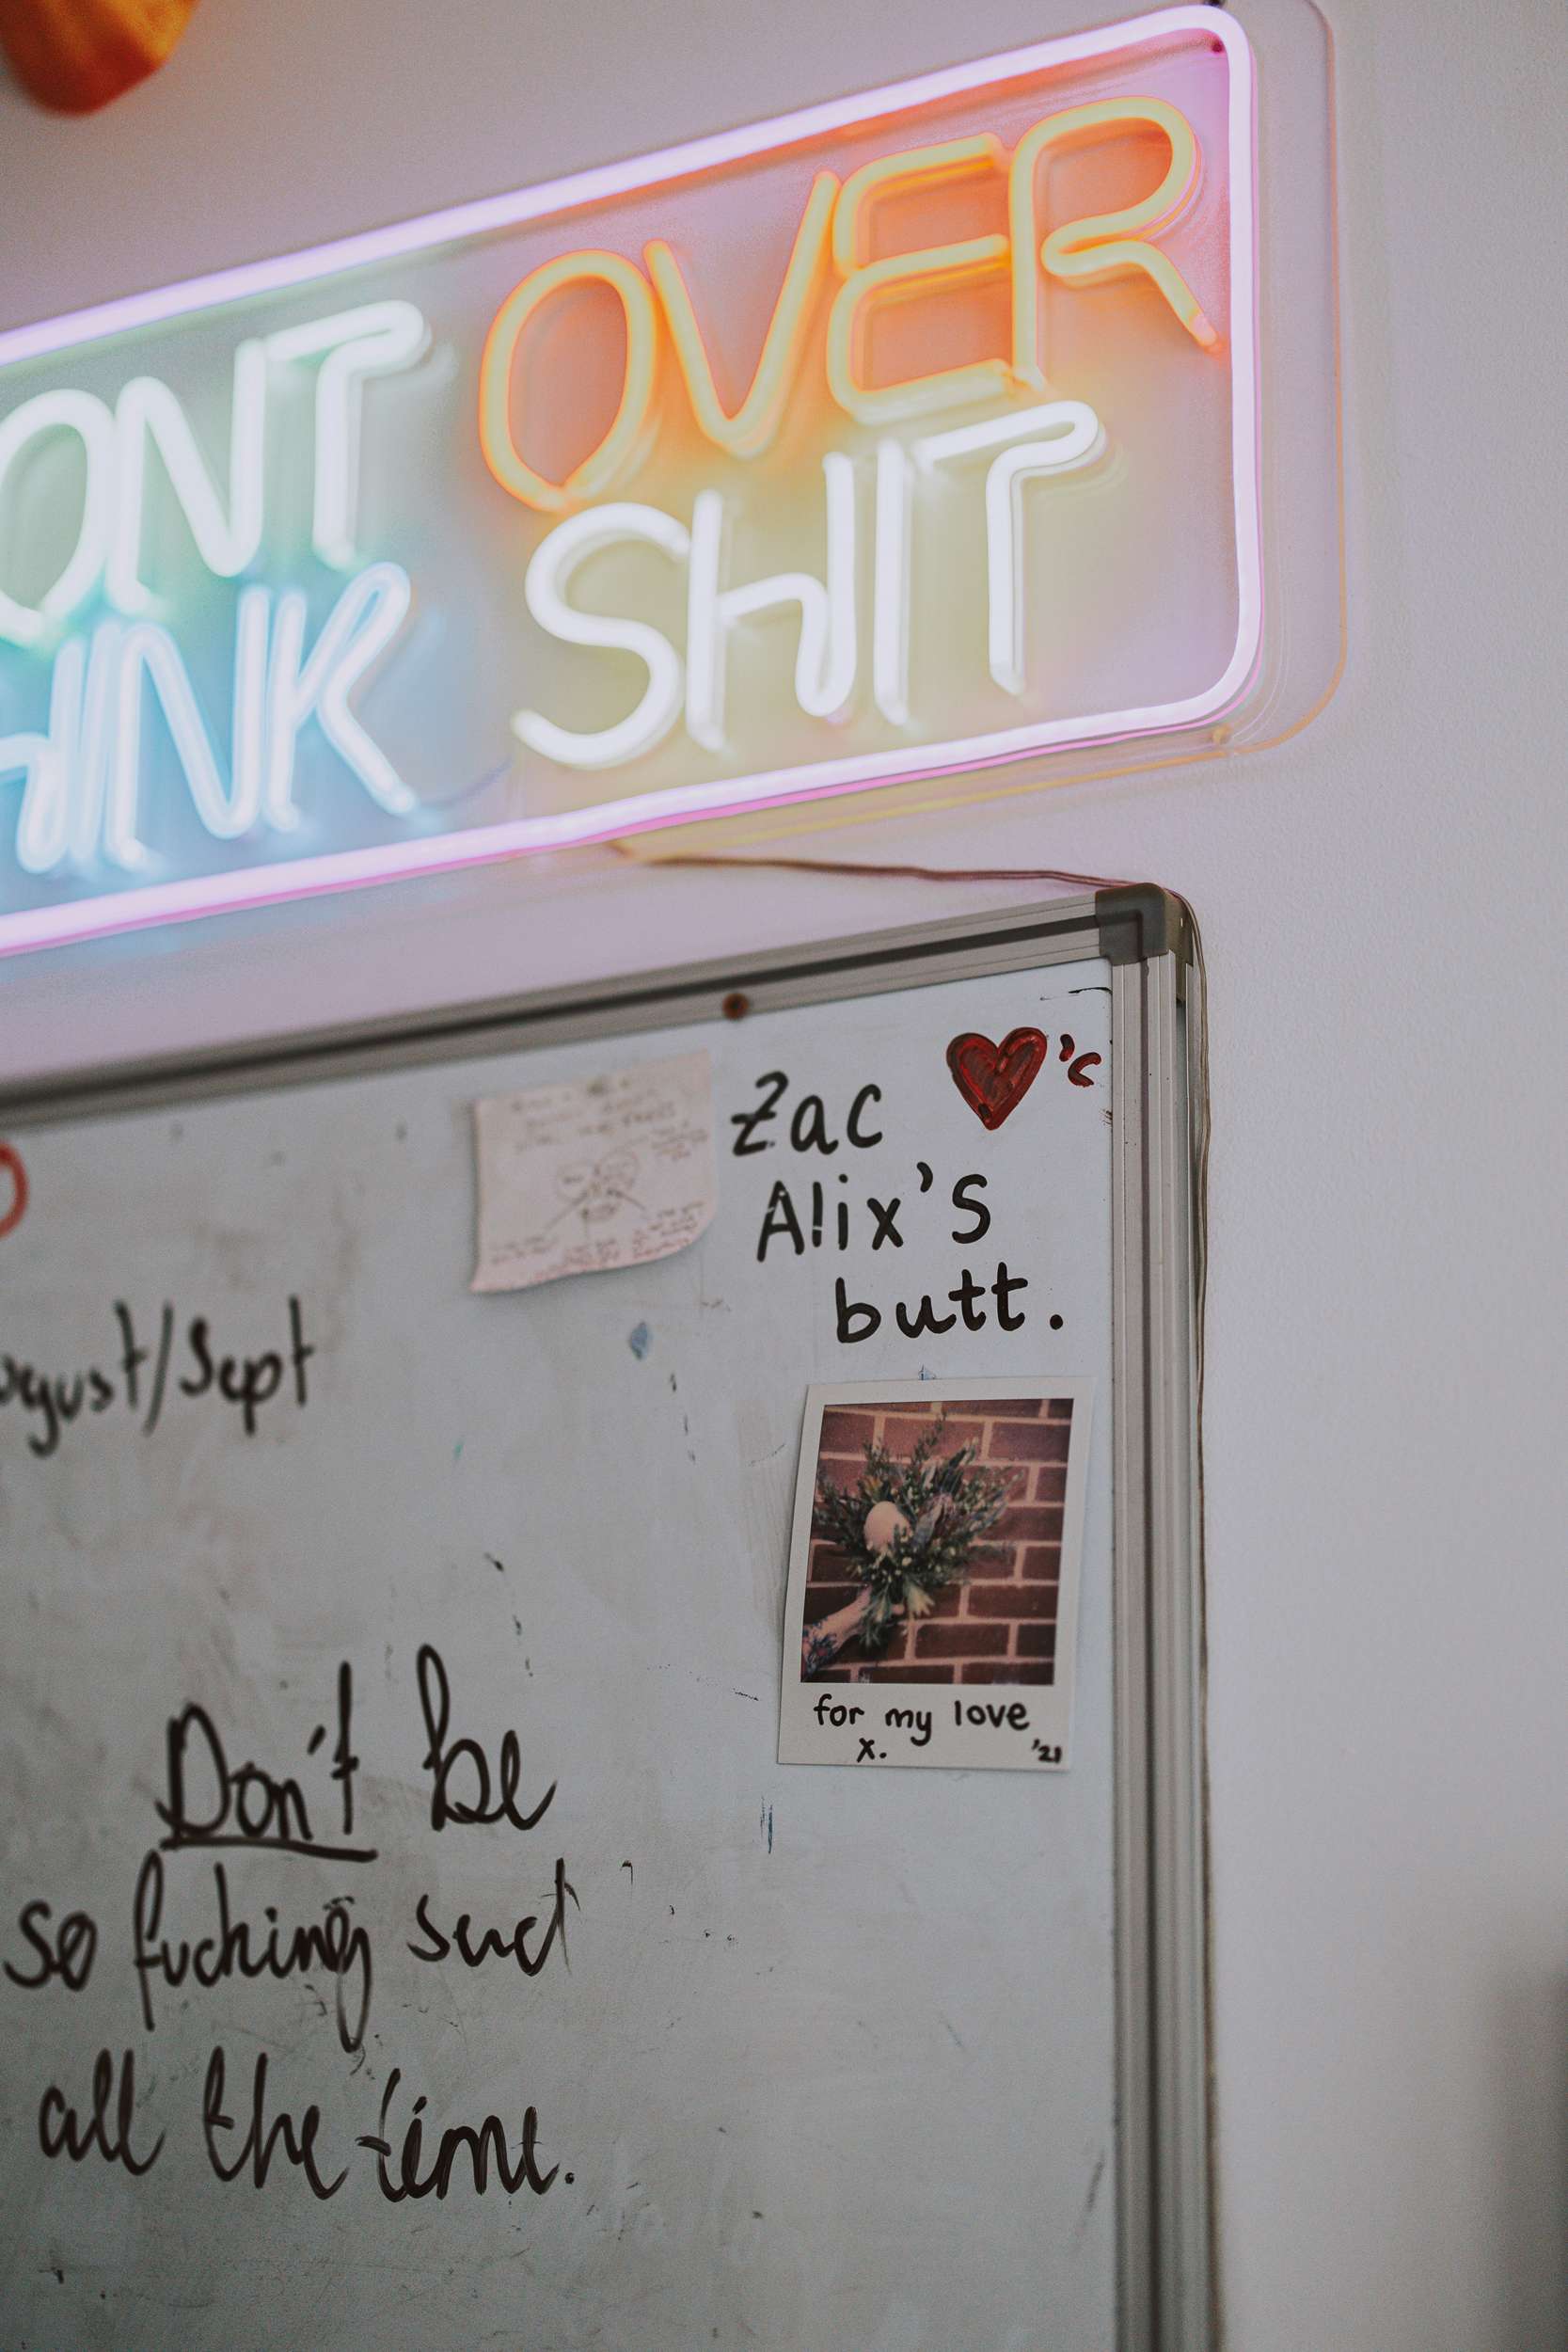 ONT OVER
HINK SHIT
Zac ❤'s
Alix's
butt.
ugust/Sept
for my love
x. '21
Don't be
so fucking sad
all the time.